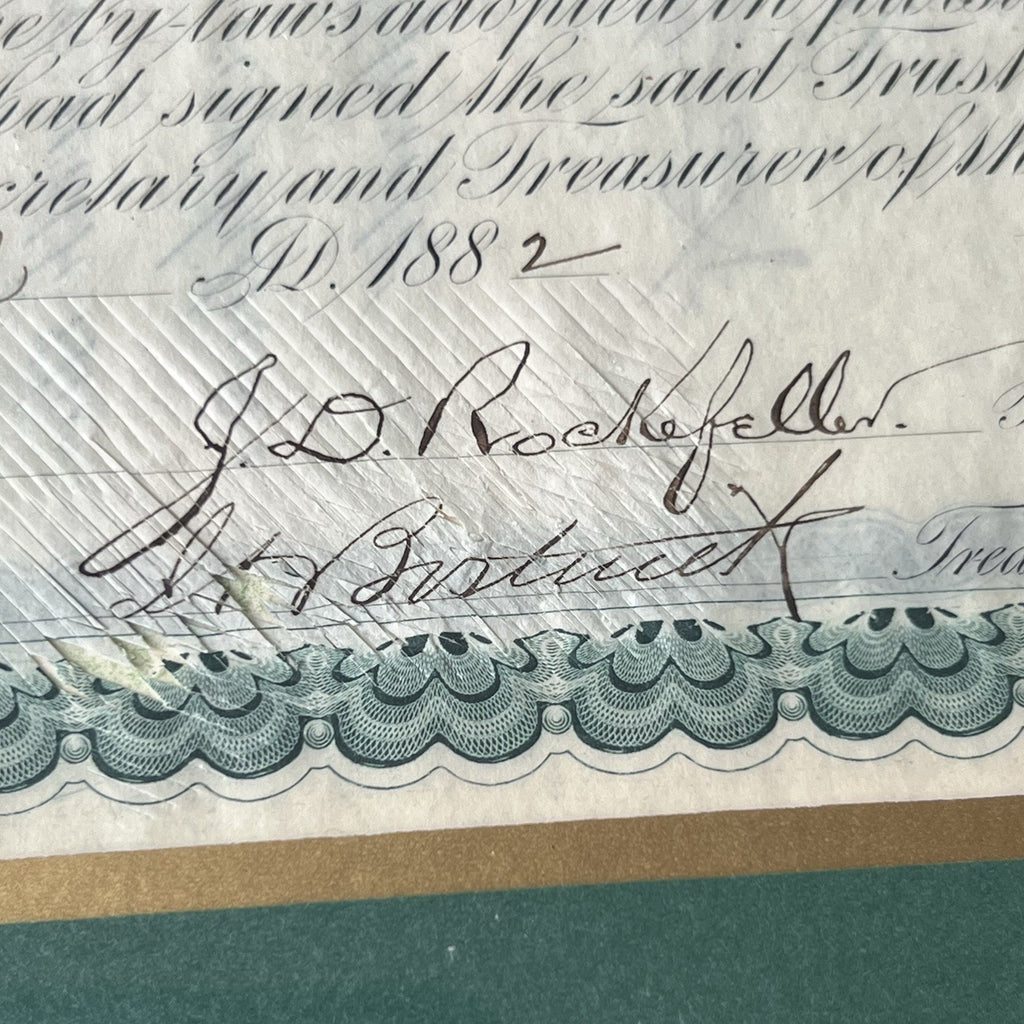 by-laws adopted in
had signed the said Trust
cretary and Treasurer of th
A.D. 1882
J. D. Rockefeller.
Bostwick
Trea